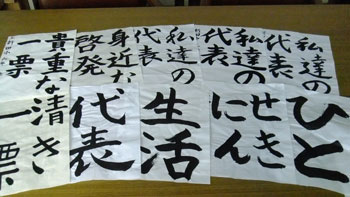 私達の
代表
私達の
代表
私達の
代表
身近な
啓発
貴重な
一票
ひと
せき
にん
生活
代表
清き
一票